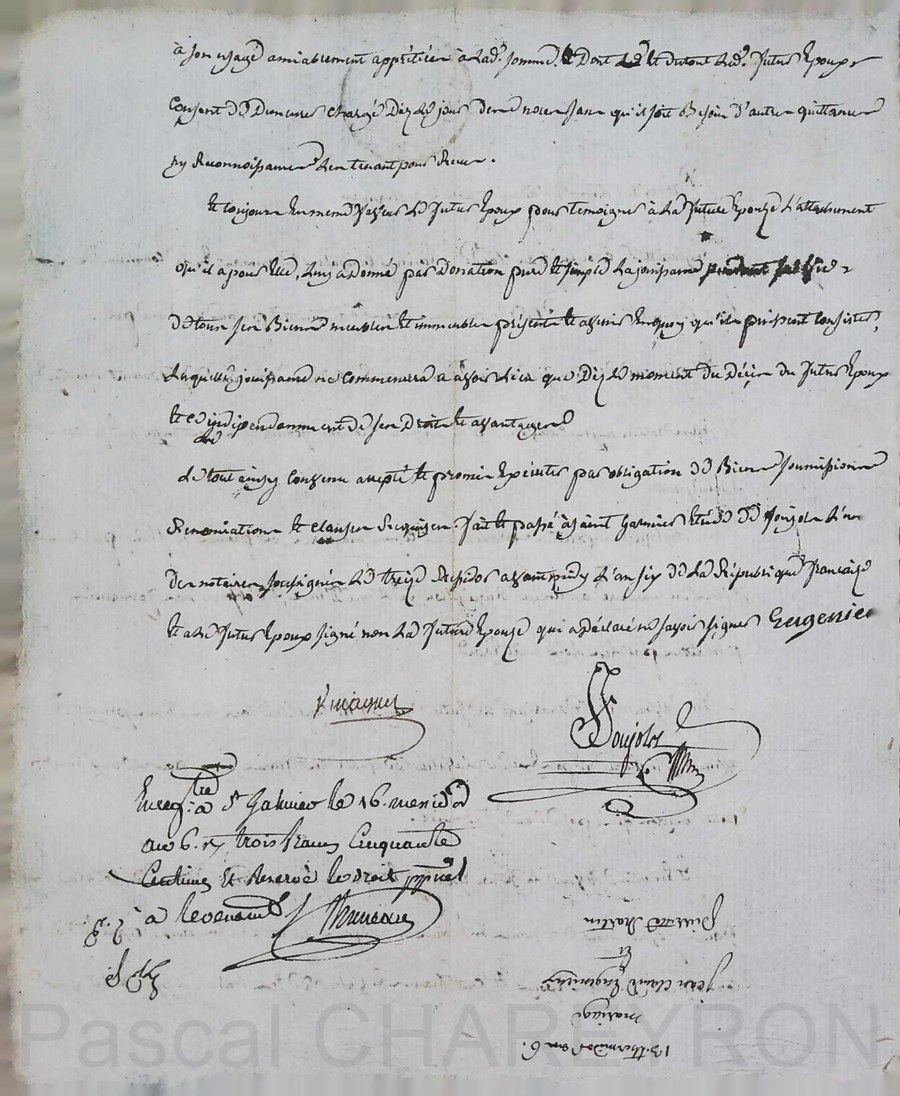 à son usage amiablement appretiées à lad. somme. Et dont led. et du tout led. futur Epoux
Consent de Demeurer chargé Dez le jour de de noces sans qu'il soit Besoin d'autre quittance
ny Reconnoissance l'en tenant pour Receu.
Et toujours En meme faveur le futur Epoux pour temoigner à la future Epouze l'attachement
qu'il a pour Elle, luy a donné par Donation pure et simple la jouissance
de tous ses Biens meubles et immeubles présents et avenir En quoy qu'ils puissent Consister,
laquelle jouissance ne Commencera a avoir lieu que Dez le moment du Décès du futur Epoux
et ce independamment de ses Droits et avantages
Le tout ainsy Convenu accepté et promis Executer par obligation de Biens soumissions
Renonciations et clauses Requises. fait et passé à saint Galmier Etude de Poujols l'un
Des notaires soussignés le treize avant midy l'an six de la République francaise
et a le futur Epoux signé non la future Epouze qui a Déclaré ne savoir signer Eugenier
Poujolos
Enregtré à St Galmier le 16.
an 6. Rx trois francs Cinquante
Centimes Et Reservé le droit ppnel
à levenemt
13. thermidor an 6.
mariage
jean Claude Eugenier
Et